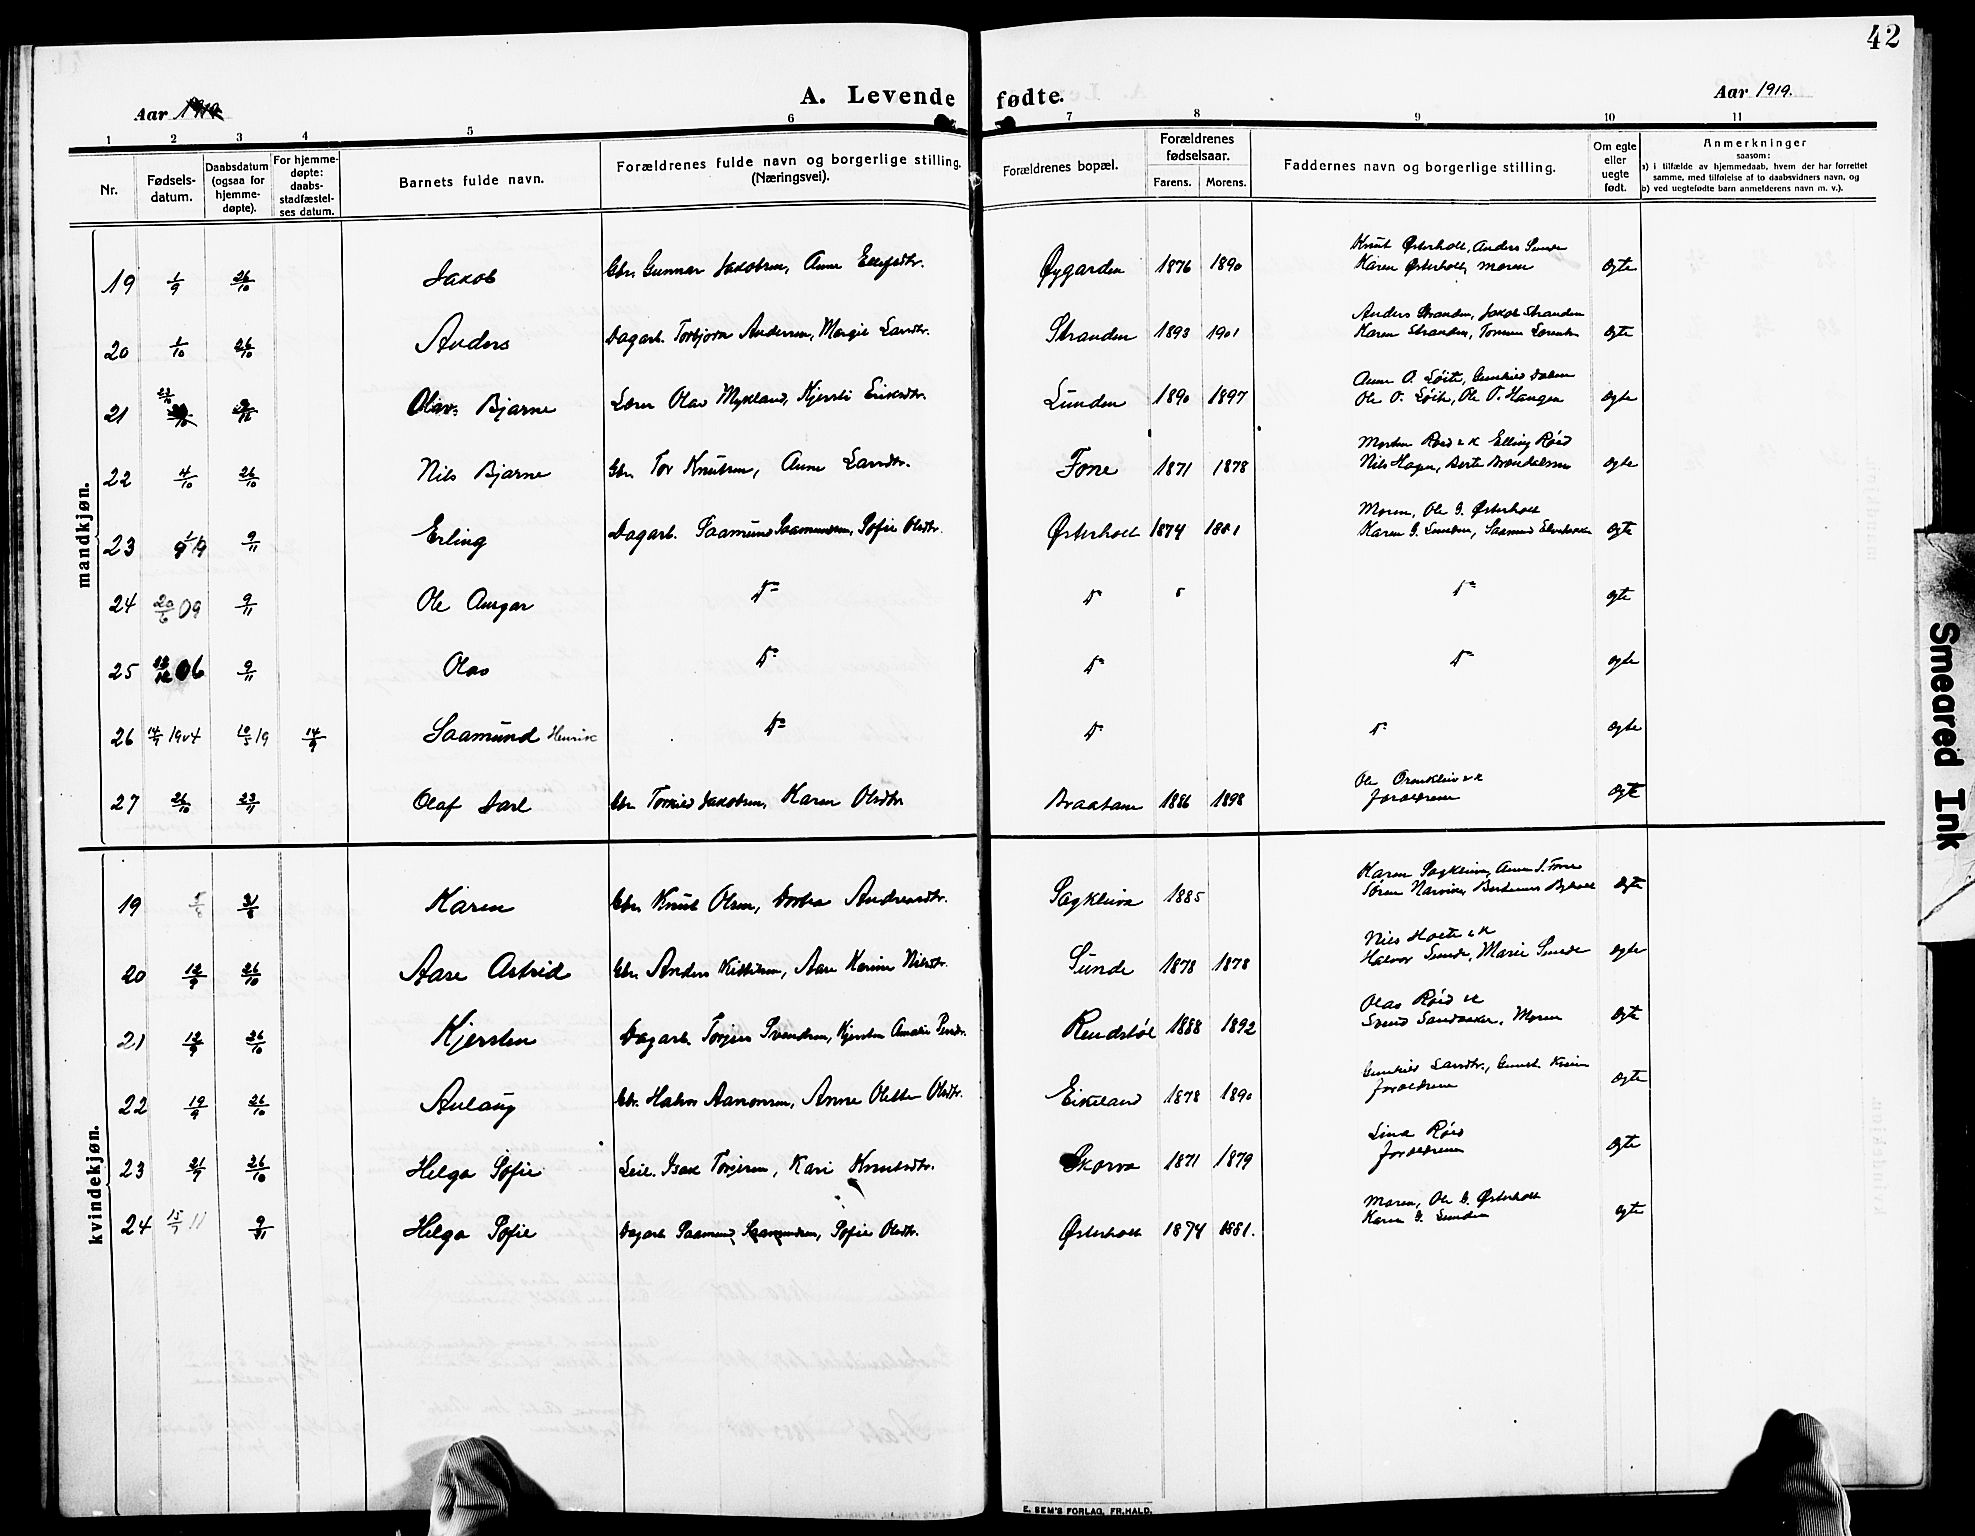 42
A. Levende fødte.
Aar 1919
Aar 1919.
1 2 3 4 5 6 7 8 9 10 11
Nr.
Fødsels-
datum.
Daabsdatum
(ogsaa for
hjemme-
døpte).
For hjemme-
døpte:
daabs-
stadfæstel-
ses datum.
Barnets fulde navn.
Forældrenes fulde navn og borgerlige stilling.
(Næringsvei).
Forældrenes bopæl.
Forældrenes
fødselsaar.
Farens. Morens.
Faddernes navn og borgerlige stilling.
Om egte
eller
uegte
født.
Anmerkninger
saasom:
a) i tilfælde av hjemmedaab, hvem der har forrettet
samme, med tilføielse af to daabsvidners navn, og
b) ved uegtefødte barn anmelderens navn m. v.).
mandkjøn.
Knut Østerholt, Anders Sunde
19 1/9 26/10 Jakob Gbr. Gunnar Jakobsen, Anne Ellefsdtr. Øygarden 1876 1890 Karen Østerholt, moren egte
Anders Stranden, Jakob Stranden
20 1/10 26/10 Anders Dagarb. Torbjørn Andersen, Margit Larsdtr. Stranden 1893 1901 Karen Stranden, Tomine egte
Anne O. Løite, Gunhild Dalen
21 Olav Bjarne Lærer Olav Mykland, Kjersti Eriksdtr. Lunden 1890 1897 Ole O. Løite, Ole T. Haugen egte
Morten Røed & K Elling Røed
22 4/10 26/10 Nils Bjarne Gbr. Tor Knutsen, Anne Larsdtr. Fone 1871 1878 Nils Hagen, Berte egte
Moren, Ole G. Østerholt
23 9/11 Erling Dagarb. Saamund Saamundsen, Sofie Olsdtr. Østerholt 1874 1881 Karen G. Lunden, Saamund egte
24 20/6 09 9/11 Ole Ansgar Do Do Do egte
25 06 9/11 Olav Do Do Do egte
26 14/9 1904 10/5 19 14/9 Saamund Henrik Do Do Do egte
Ole & K
27 26/10 23/11 Olaf Jarl Gbr. Torkild Jakobsen, Karen Olsdtr. Braatane 1886 1898 forældrene egte
kvindekjøn.
Karen Sagkleiva, Anne S. Fone
19 31/8 Karen Gbr. Knut Olsen, Dortea Andreasdtr. Sagkleiva 1885 Søren egte
Nils Holte & K
20 12/9 26/10 Aase Astrid Gbr. Anders Kittilsen, Aase Karine Nilsdtr. Sunde 1878 1878 Halvor Sunde, Marie Sunde egte
Olav Røed & K
21 12/9 26/10 Kjersten Dagarb. Torjus Svendsen, Kjersten Amalie Pedsdtr. Rendstøl 1888 1892 Svend Sandaaker, Moren egte
Gunhild Larsdtr., Gunst.
22 19/9 26/10 Aslaug Gbr. Halvor Aanonsen, Anne Olette Olsdtr. Eikeland 1878 1890 forældrene egte
Lina Røed
23 21/9 26/10 Helga Sofie Leil. Isak Torjusen, Kari Knutsdtr. Skorva 1871 1879 forældrene egte
Moren, Ole G. Østerholt
24 15/7 11 9/11 Helga Sofie Dagarb. Saamund Saamundsen, Sofie Olsdtr. Østerholt 1874 1881. Karen G. Lunden egte
E. SEM'S FORLAG, FR.HALD.
Smeared Ink